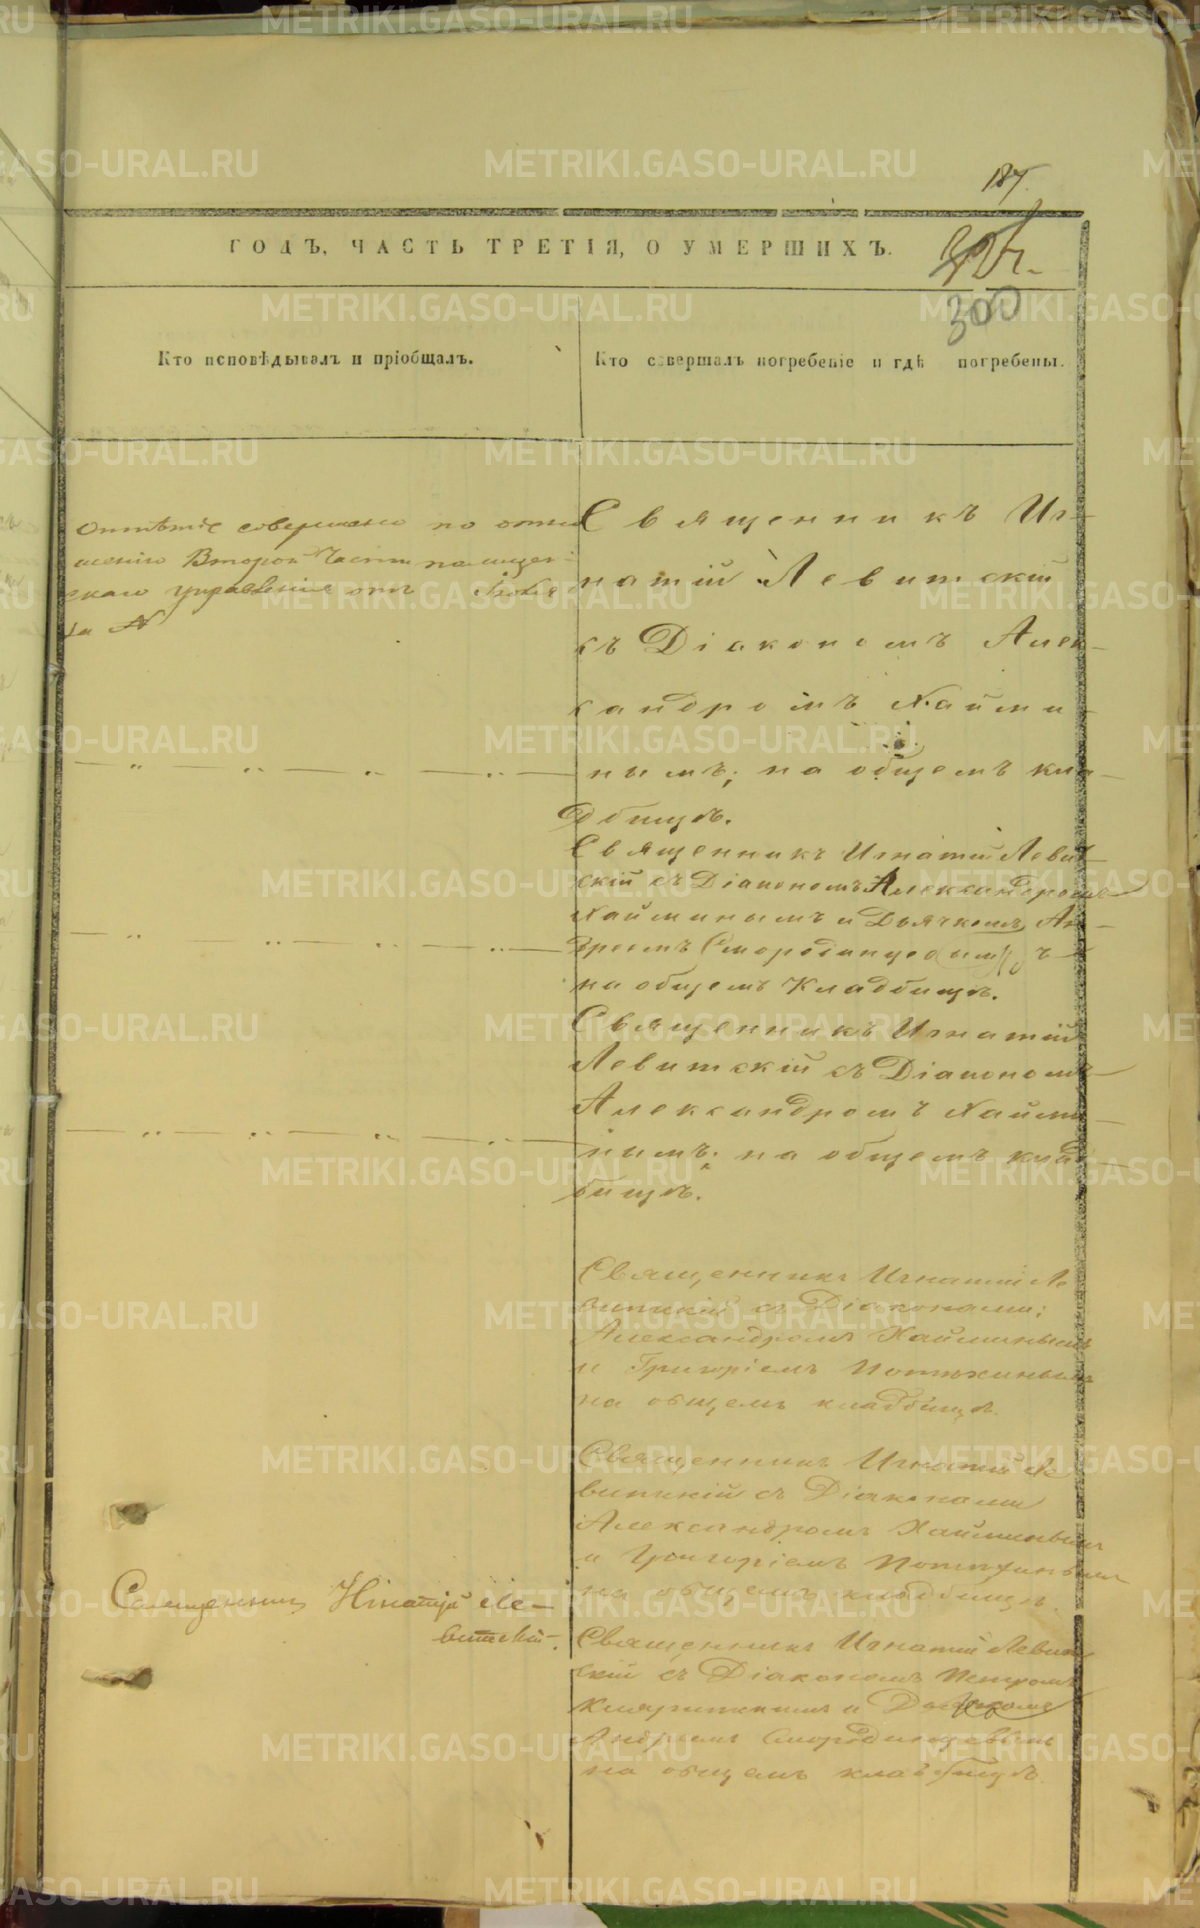 187.
300
ГОДЪ, ЧАСТЬ ТРЕТІЯ, О УМЕРШИХЪ.
Кто исповѣдывалъ и пріобщалъ.
Кто совершалъ погребеніе и гдѣ погребены.
Отпѣтіе совершено по отно
шенію Второй Части полицей
скаго управленія отъ Іюля
за №
Священникъ Иг-
натій Левитскій
съ Діакономъ Алек-
сандромъ Хайми-
нымъ; на общемъ кла-
дбищѣ.
Священникъ Игнатій Левит
скій съ Діакономъ Александромъ
Хайминымъ и Дьячкомъ Ан-
дреемъ Смородинцевымъ
на общемъ Кладбищѣ.
Священникъ Игнатій
Левитскій съ Діакономъ
Александромъ Хайми-
нымъ; на общемъ клад-
бищѣ.
Священникъ Игнатій Ле
витскій съ Діаконами:
Александромъ Хайминымъ
и Григоріемъ Потѣхинымъ
на общемъ кладбищѣ.
Священникъ Игнатій Ле
витскій съ Діаконами
Александромъ Хайминымъ
и Григоріемъ
на общемъ кладбищѣ.
Священникъ Игнатій Ле-
витскій.
Священникъ Игнатій Левит
скій съ Діакономъ Петромъ
и
Андреемъ Смородинцевымъ
на общемъ кладбищѣ
METRIKI.GASO-URAL.RU